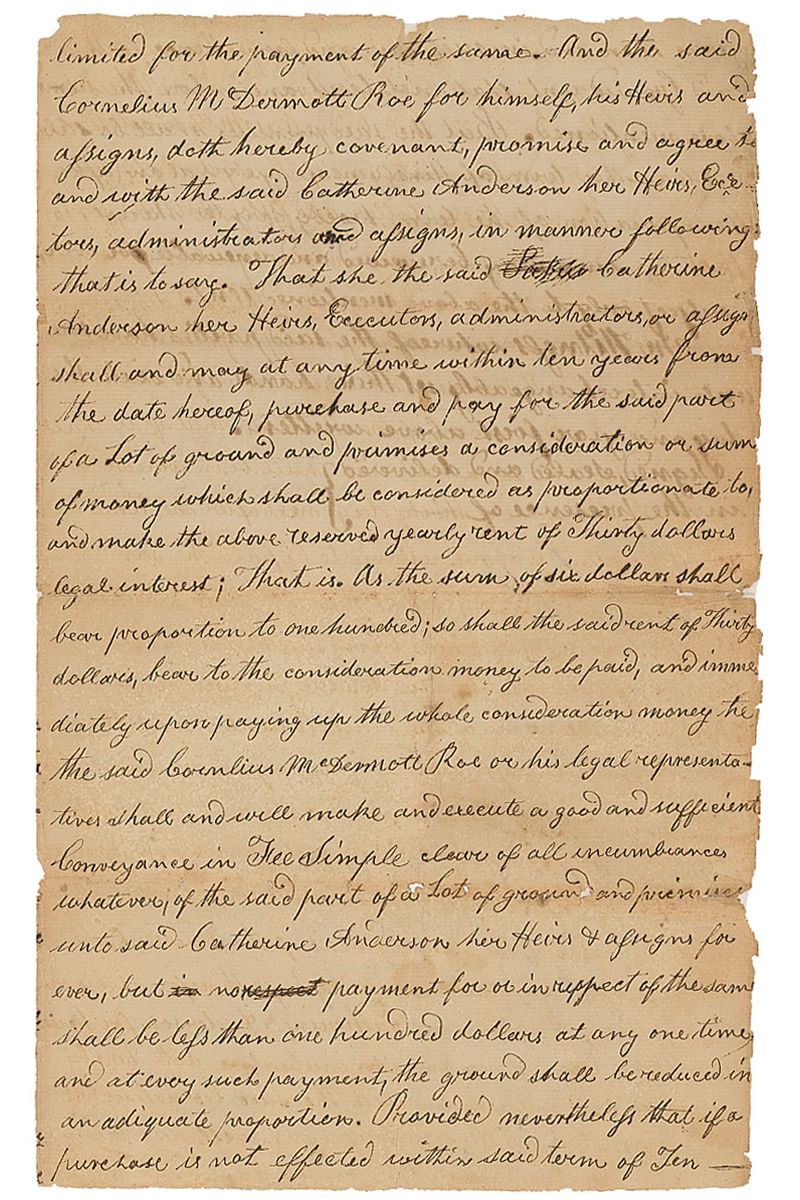 limited for the payment of the same. And the said
Cornelius McDermott Roe for himself, his Heirs and
assigns, doth hereby covenant, promise and agree to
and with the said Catherine Anderson her Heirs, Exe-
tors, administrators and assigns, in manner following:
that is to say. That she the said Catherine
Anderson her Heirs, Executors, administrators, or assigns
shall and may at any time within ten years from
the date hereof, purchase and pay for the said part
of a Lot of ground and primises a consideration or sum
of money which shall be considered as proportionate to,
and make the above reserved yearly rent of Thirty dollars
legal interest; That is. As the sum of six dollars shall
bear proportion to one hundred; so shall the said rent of Thirty
dollars, bear to the consideration money to be paid, and imme
diately upon paying up the whole consideration money he
the said Cornlius McDermott Roe or his legal representa-
tives shall and will make and execute a good and sufficient
Conveyance in Fee Simple clear of all incumbrances
whatever, of the said part of a Lot of ground and primises
unto said Catherine Anderson her Heirs & assigns for
ever, but in no respect payment for or in respect of the same
shall be less than one hundred dollars at any one time,
and at every such payment, the ground shall be reduced in
an adiquate proportion. Provided nevertheless that if a
purchase is not effected within said term of Ten —